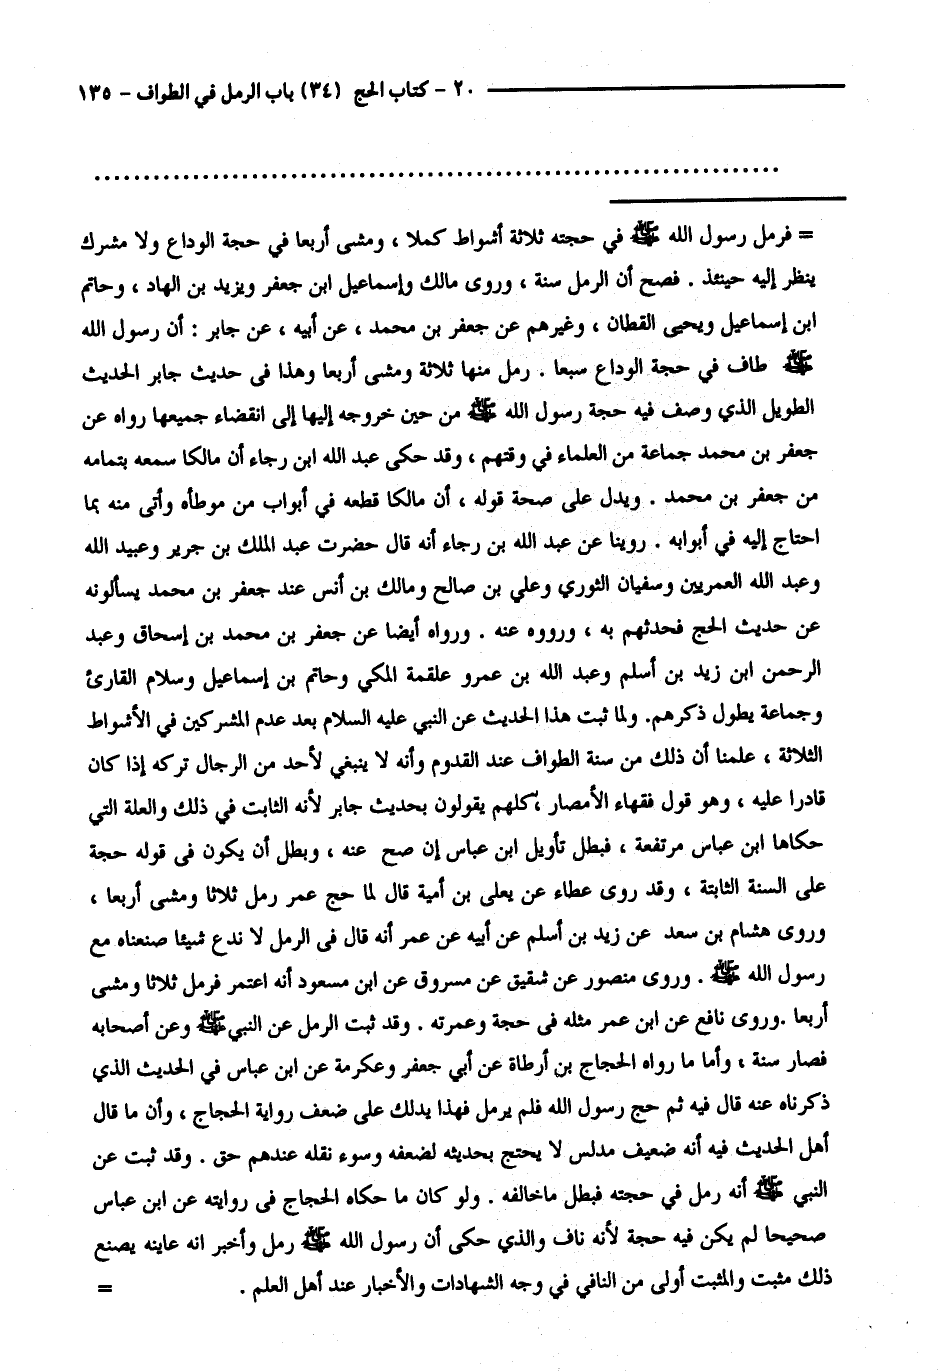 ٢٠ - كتاب الحج (٣٤) باب الرمل في الطواف - ١٣٥
= فرمل رسول الله ﷺ في حجته ثلاثة أشواط كملا ، ومشى أربعا في حجة الوداع ولا مشرك
ينظر إليه حينئذ . فصح أن الرمل سنة ، وروى مالك وإسماعيل ابن جعفر ويزيد بن الهاد ، وحاتم
ابن إسماعيل ويحيى القطان ، وغيرهم عن جعفر بن محمد ، عن أبيه ، عن جابر : أن رسول الله
ﷺ طاف في حجة الوداع سبعا . رمل منها ثلاثة ومشى أربعا وهذا فى حديث جابر الحديث
الطويل الذي وصف فيه حجة رسول الله ﷺ من حين خروجه إليها إلى انقضاء جميعها رواه عن
جعفر بن محمد جماعة من العلماء في وقتهم ، وقد حكى عبد الله ابن رجاء أن مالكا سمعه بتمامه
من جعفر بن محمد . ويدل على صحة قوله ، أن مالكا قطعه في أبواب من موطأه وأتى منه بما
احتاج إليه في أبوابه . روينا عن عبد الله بن رجاء أنه قال حضرت عبد الملك بن جرير وعبيد الله
وعبد الله العمريين وسفيان الثوري وعلي بن صالح ومالك بن أنس عند جعفر بن محمد يسألونه
عن حديث الحج فحدثهم به ، ورووه عنه . ورواه أيضا عن جعفر بن محمد بن إسحاق وعبد
الرحمن ابن زيد بن أسلم وعبد الله بن عمرو علقمة المكي وحاتم بن إسماعيل وسلام القارئ
وجماعة يطول ذكرهم. ولما ثبت هذا الحديث عن النبي عليه السلام بعد عدم المشركين في الأشواط
الثلاثة ، علمنا أن ذلك من سنة الطواف عند القدوم وأنه لا ينبغي لأحد من الرجال تركه إذا كان
قادرا عليه ، وهو قول فقهاء الأمصار ،كلهم يقولون بحديث جابر لأنه الثابت في ذلك والعلة التي
حكاها ابن عباس مرتفعة ، فبطل تأويل ابن عباس إن صح عنه ، وبطل أن يكون فى قوله حجة
على السنة الثابتة ، وقد روى عطاء عن يعلى بن أمية قال لما حج عمر رمل ثلاثا ومشى أربعا ،
وروى هشام بن سعد عن زيد بن أسلم عن أبيه عن عمر أنه قال فى الرمل لا ندع شيئا صنعناه مع
رسول الله ﷺ . وروى منصور عن شقيق عن مسروق عن ابن مسعود أنه اعتمر فرمل ثلاثا ومشى
أربعا .وروى نافع عن ابن عمر مثله فى حجة وعمرته . وقد ثبت الرمل عن النبي ﷺ وعن أصحابه
فصار سنة ، وأما ما رواه الحجاج بن أرطاة عن أبي جعفر وعكرمة عن ابن عباس في الحديث الذي
ذكرناه عنه قال فيه ثم حج رسول الله فلم يرمل فهذا يدلك على ضعف رواية الحجاج ، وأن ما قال
أهل الحديث فيه أنه ضعيف مدلس لا يحتج بحديثه لضعفه وسوء نقله عندهم حق . وقد ثبت عن
النبي ﷺ أنه رمل في حجته فبطل ماخالفه . ولو كان ما حكاه الحجاج فى روايته عن ابن عباس
صحيحا لم يكن فيه حجة لأنه ناف والذي حكى أن رسول الله ﷺ رمل وأخبر انه عاينه يصنع
ذلك مثبت والمثبت أولى من النافي في وجه الشهادات والأخبار عند أهل العلم . =